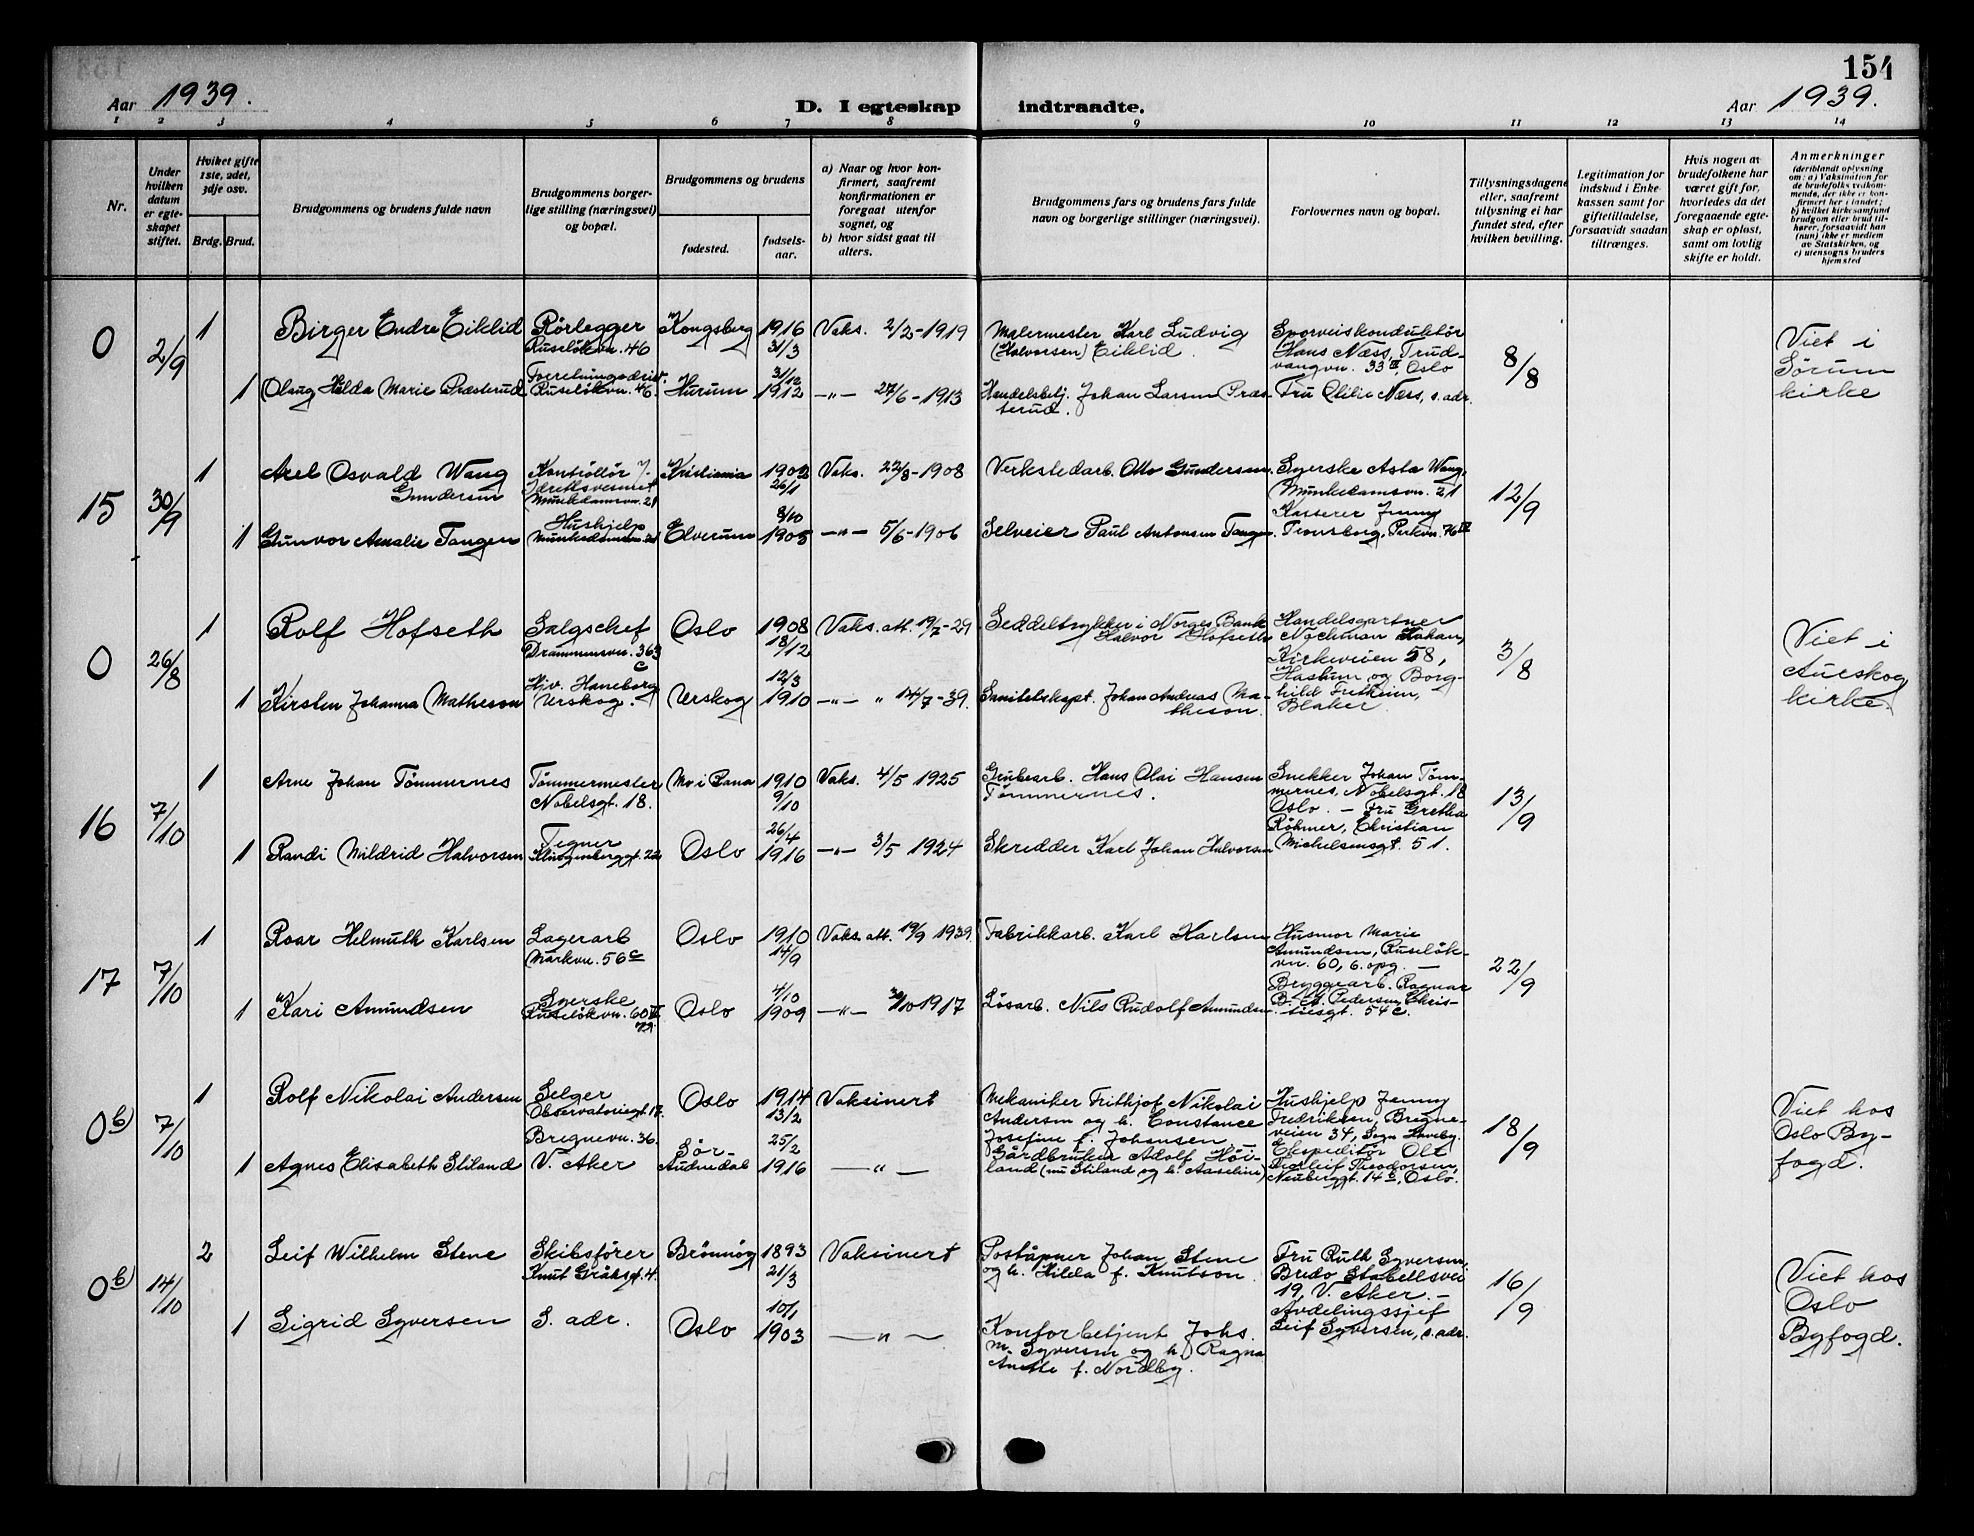 154
Aar 1939.
D. I egteskap indtraadte.
Aar 1939.
1 2 3 4 5 6 7 8 9 10 11 12 13 14
Nr.
Under hvilken datum er egte-skapet stiftet.
Hviket gifte 1ste, 2det, 3dje osv.
Brdg. Brud.
Brudgommens og brudens fulde navn
Brudgommens borger-lige stilling (næringsvei) og bopæl.
Brudgommens og brudens
fødested.
fødsels-aar.
a) Naar og hvor kon-firmert, saafremt konfirmationen er foregaat utenfor sognet, og
b) hvor sidst gaat til alters.
Brudgommens fars og brudens fars fulde navn og borgerlige stillinger (næringsvei).
Forlovernes navn og bopæl.
Tillysningsdagene eller, saafremt tillysning ei har fundet sted, efter hvilken bevilling.
Legitimation for indskud i Enke-kassen samt for giftetilladelse, forsaavidt saadan tiltrænges.
Hvis nogen av brudefolkene har været gift før, hvorledes da det foregaaende egte-skap er opløst, samt om lovlig skifte er holdt.
Anmerkninger (deriblandt oplysning om: a) Vaksination for de brudefolks vedkom-mende, der ikke er kon-firmert her i landet; b) hvilket kirkesamfund brudgom eller brud til-hører, forsaavidt han (hun) ikke er medlem av Statskirken, og c) utensogns bruders hjemsted
0 2/9 1 Birger Endre Eiklid Rörlegger Ruselökvn. 46 Kongsberg 1916 31/3 Vaks. 2/2-1919 Malermester Karl Ludvig (Halvorsen) Eiklid. Sporveiskonduktör Hans Næss, Trud-vangvn. 33 II, Oslo 8/8 Viet i Sörum kirke
1 Olaug Hilda Marie Præsterud Ruselökvn. 46. Hurum 31/12 1912 —"— 27/6-1913 Handelsbetj. Johan Larsen Præs-terud. Fru Otilie Næss, s. adr.
15 30/9 1 Axel Osvald Wang Gundersen Kontrollör Munkedamsvn. 21 Kristiania 1902 26/1 Vaks. 22/8-1908 Verkstedarb. Otto Gundersen. Syerske Asta Wang, Munkedamsvn. 21 12/9
1 Gunvor Amalie Tangen Hushjelp Munkedamsvn. 21 Elverum 8/10 1905 —"— 5/6-1906 Selveier Paul Antonsen Tangen. Kasserer Jenny Tronsborg, Parkvn. 76 IV
0 26/8 1 Rolf Hofseth Salgschef Drammensvn. 363 c Oslo 1908 18/12 Vaks. att. 19/7-29 Seddeltrykker i Norges Bank Halvor Hofseth Handelsgartner Kirkeveien 58, Haslum og Borg-hild Fretheim, Blaker. 3/8 Viet i Aurskog kirke.
1 Kirsten Johanna Matheson Hjv. Haneborg Urskog. Urskog 12/3 1910 —"— " 14/7-39. Sanitetskapt. Johan Andreas Ma-theson.
16 7/10 1 Arne Johan Tömmernes Tömmermester Nobelsgt. 18. Mo i Rana 1910 9/10 Vaks. 4/5 1925 Grubearb. Hans Olai Hansen Tömmernes. Snekker Johan Töm-mernes, Nobelsgt. 18 Oslo. — Fru Gretha Röhmer, Christian Michelsensgt. 51. 13/9
1 Randi Mildrid Halvorsen Tegner Klingenberggt. 22 Oslo 26/4 1916 —"— 3/5 1924 Skredder Karl Johan Halvorsen
17 7/10 1 Roar Helmuth Karlsen Lagerarb Markvn. 56c Oslo 1910 14/9 Vaks. att. 19/9 1939. Fabrikkarb. Karl Karlsen Husmor Marie Amundsen, Ruselök-vn. 60, 6. opg. — Bryggearb. Ragnar B. A. Pedersen, Chris-tiesgt. 54 c. 22/9
1 Kari Amundsen Syerske Ruselökvn. 60 VI Oslo 4/10 1909 —"— 30/10 1917 Lösarb. Nils Rudolf Amundsen.
0 b) 7/10 1 Rolf Nikolai Andersen Selger Observatoriegt. 17. Oslo 1914 13/2 Vaksinert Mekaniker Frithjof Nikolai Andersen og h. Constance Josefine f. Johansen. Hushjelp Jenny Fredriksen, Bregne-veien 34, 18/9 Viet hos Oslo By-fogd.
1 Agnes Elisabeth Stiland Bregnevn. 36. V. Aker Sör-Audnedal 25/2 1916 —"— Gårdbruker Adolf Höi-land (nu Stiland og h. Aaseline) Ekspeditör Theodorsen, Neuberggt. 14 b, Oslo.
0 b) 14/10 2 Leif Wilhelm Stene Skibsförer Knut Gråhsgt. 4. Brönnöy 1893 21/3 Vaksinert Poståpner Johan Stene og h. Hilda f. Knutson. Fru Ruth Syversen, Bredo Stabellsvei 19, V. Aker. — 16/9 Viet hos Oslo Byfogd.
1 Sigrid Syversen S. adr. Oslo 10/1 1903 —"— Kontorbetjent Johs. M. Syversen og h. Ragna Anette f. Nordby. Avdelingssjef Leif Syversen, s. adr.